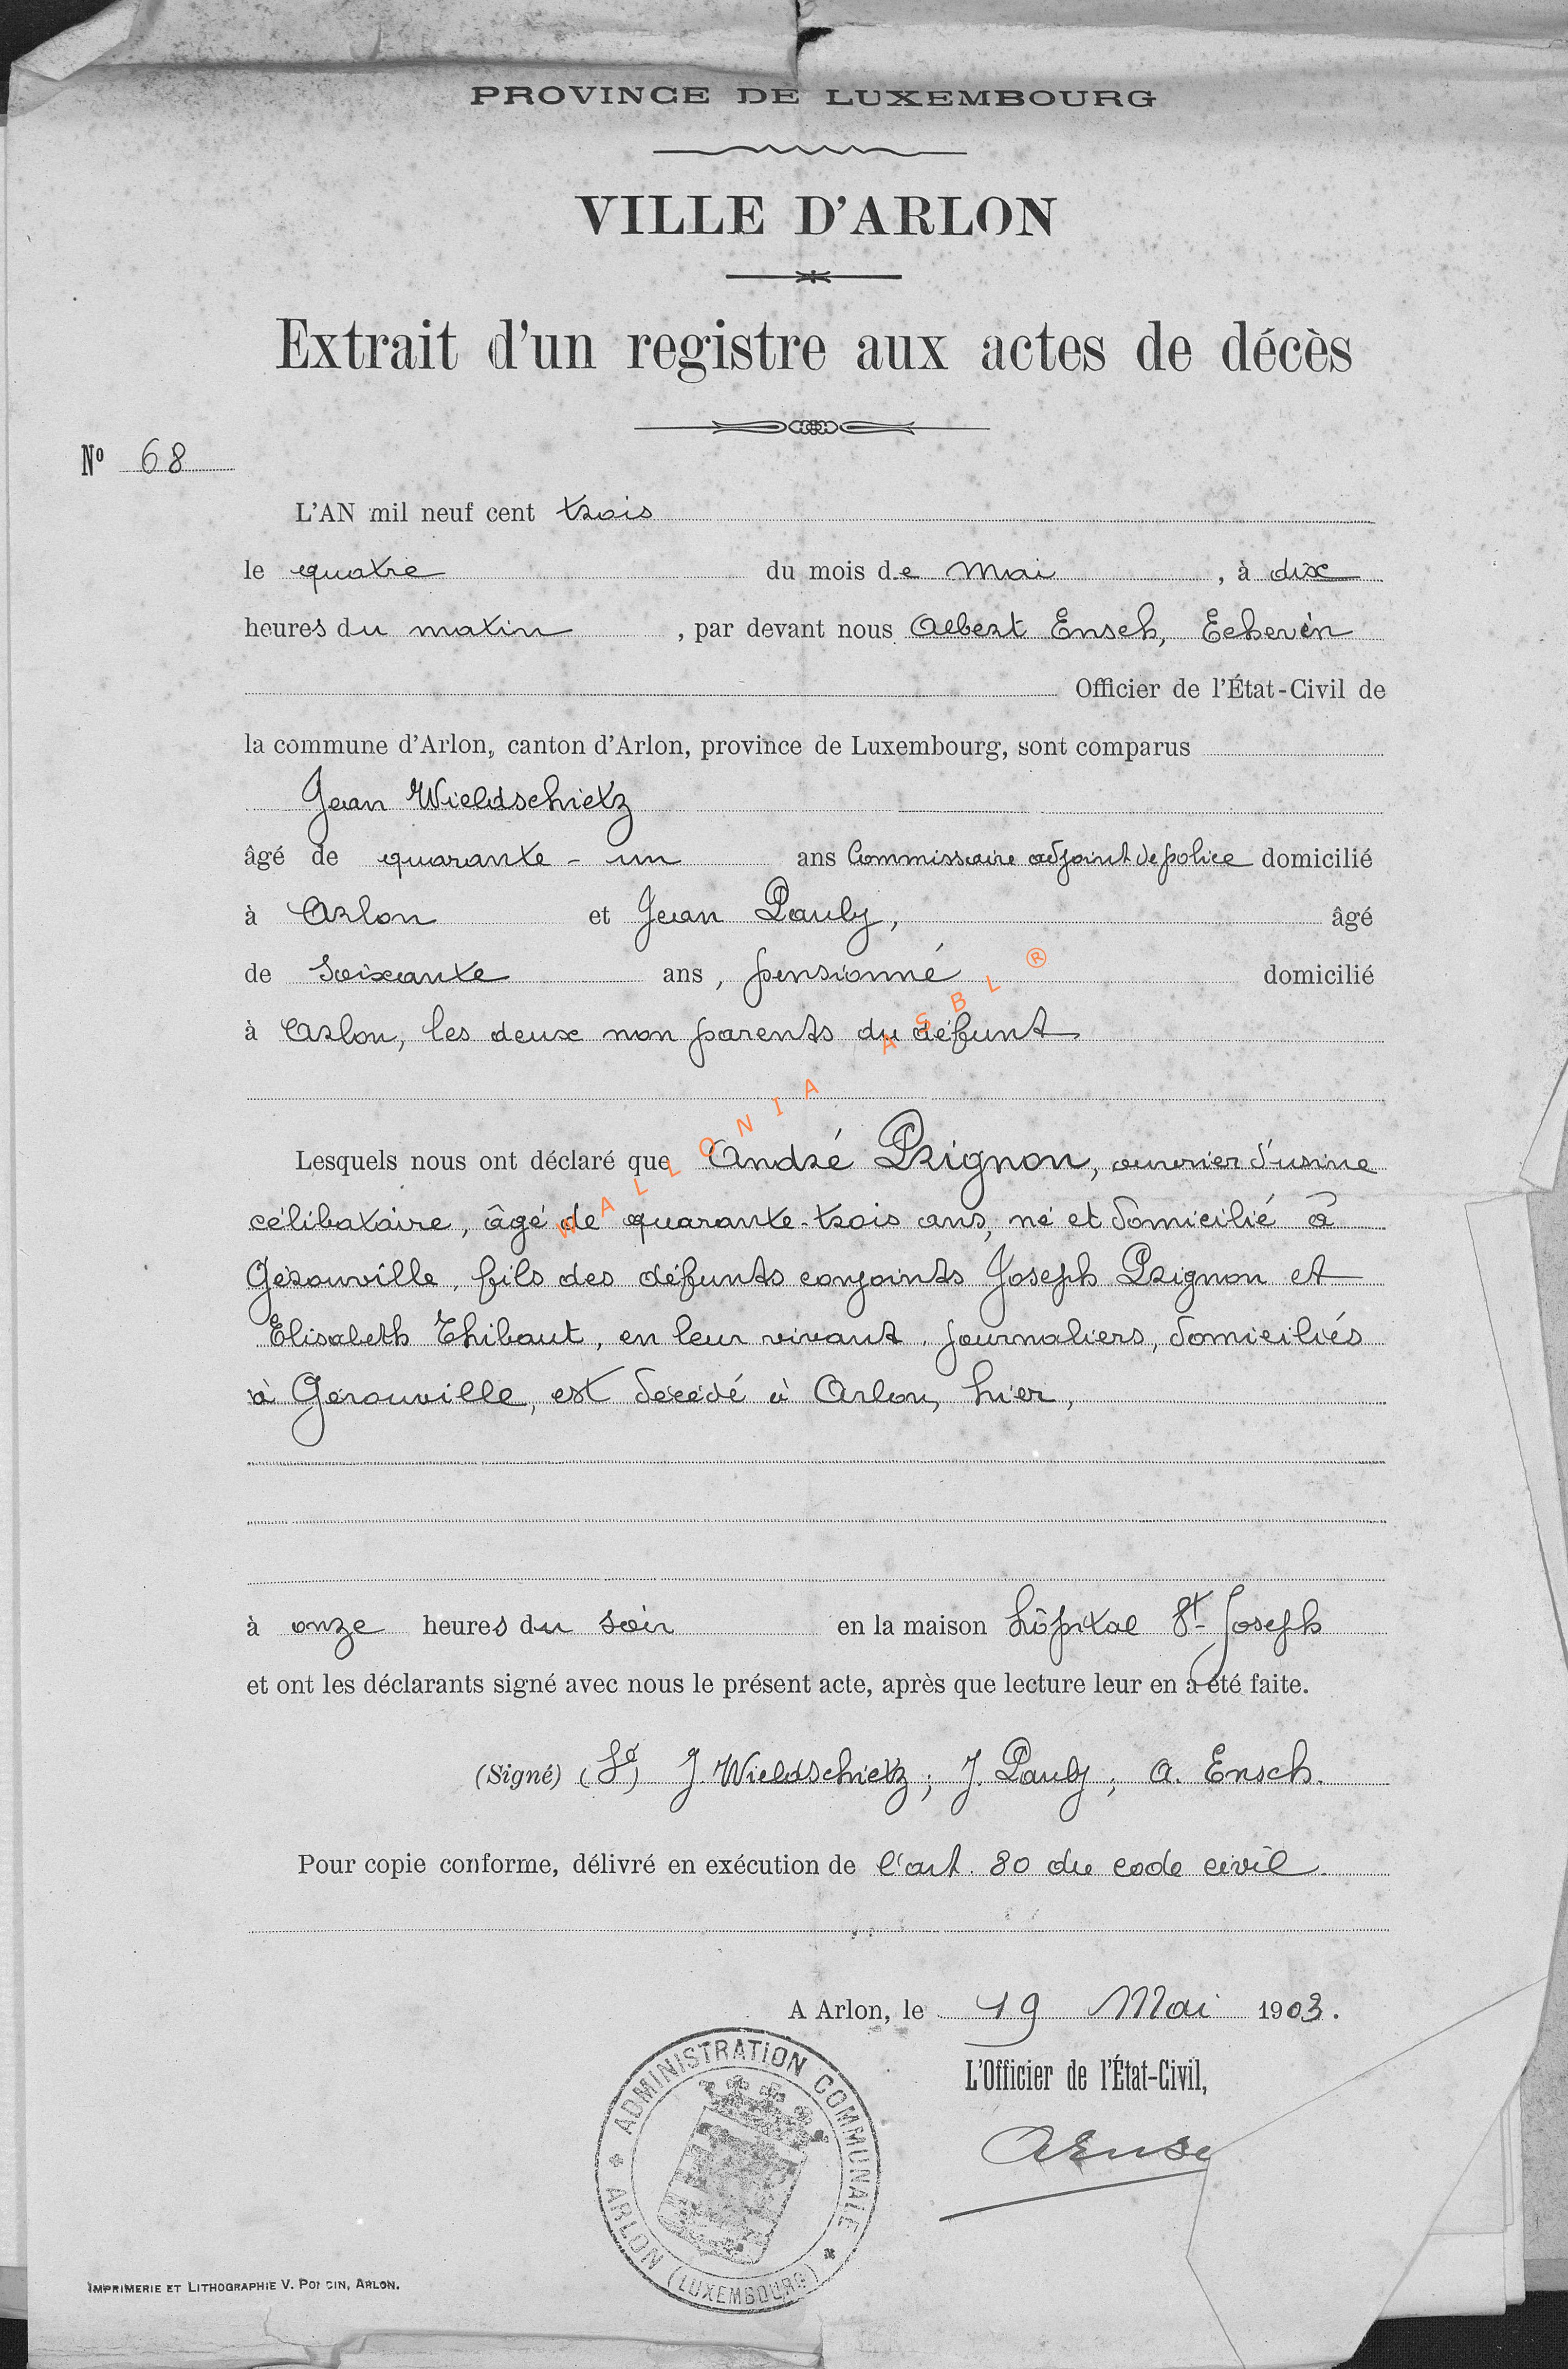 PROVINCE DE LUXEMBOURG
VILLE D'ARLON
Extrait d'un registre aux actes de décès
N° 68
L'AN mil neuf cent trois
le quatre du mois de Mai, à dix
heures du matin, par devant nous Albert Ensch, Echevin
Officier de l'État-Civil de
la commune d'Arlon, canton d'Arlon, province de Luxembourg, sont comparus
Jean Wieldschietz
âgé de quarante-un ans Commissaire adjoint de police domicilié
à Arlon et Jean Pauly, âgé
de Soixante ans, pensionné domicilié
à Arlon, les deux non parents du défunt
Lesquels nous ont déclaré que André Prignon, ouvrier d'usine
célibataire, âgé de quarante-trois ans, né et domicilié à
Gérouville, fils des défunts conjoints Joseph Prignon et
Elisabeth Thibaut, en leur vivant journaliers, domiciliés
à Gérouville, est décédé à Arlon, hier,
à onze heures du soir en la maison hôpital St Joseph
et ont les déclarants signé avec nous le présent acte, après que lecture leur en a été faite.
(Signé) (Sé) J. Wieldschietz; J. Pauly; A. Ensch.
Pour copie conforme, délivré en exécution de l'art. 80 du code civil.
A Arlon, le 19 Mai 1903.
L'Officier de l'État-Civil,
AEnsch
ADMINISTRATION COMMUNALE
ARLON (LUXEMBOURG)
IMPRIMERIE ET LITHOGRAPHIE V. PONCIN, ARLON.
WALLONIA ASBL ®